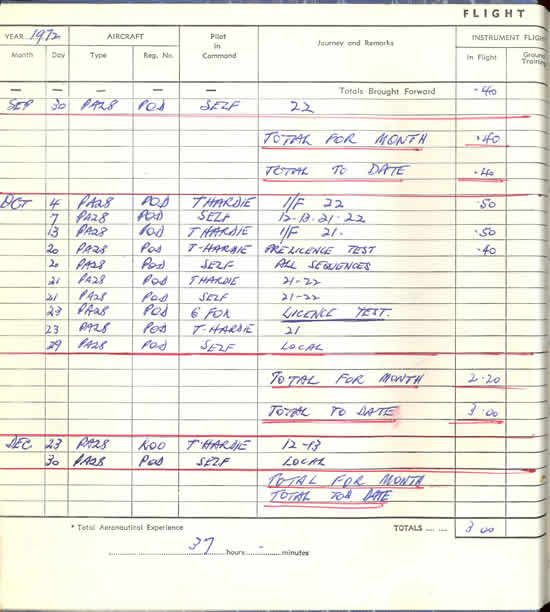 FLIGHT
YEAR 1972 AIRCRAFT Pilot in Command Journey and Remarks INSTRUMENT FLIGH
Month Day Type Reg. No. In Flight Ground Training
— — — Totals Brought Forward .40
SEP 30 PA28 POD SELF 22
TOTAL FOR MONTH .40
TOTAL TO DATE .40
OCT 4 PA28 POD T HARDIE I/F 22 .50
7 PA28 POD SELF 12-13-21-22
13 PA28 POD T HARDIE I/F 21. .50
20 PA28 POD T-HARDIE PRE LICENCE TEST .40
20 PA28 POD SELF ALL SEQUENCES
21 PA28 POD T HARDIE 21-22
21 PA28 POD SELF 21-22
23 PA28 POD G FOX LICENCE TEST.
23 PA28 POD T-HARDIE 21
29 PA28 POD SELF LOCAL
TOTAL FOR MONTH 2.20
TOTAL TO DATE 3.00
DEC 23 PA28 NOO T HARDIE 12-13
30 PA28 POD SELF LOCAL
TOTAL FOR MONTH
TOTAL TOO DATE
* Total Aeronautical Experience TOTALS .... .... 3 00
37 hours - minutes